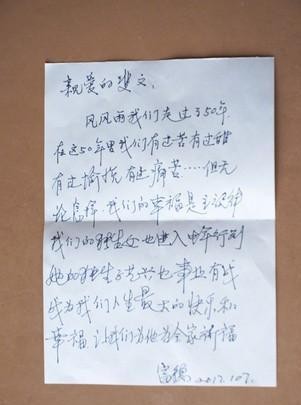 亲爱的雙文:
风风雨我们走过了50年.
在这50年里我们有过苦有过甜
有过愉悦有过痛苦……但无
论怎样,我们的幸福是主流
我们的独生女也进入中年行列
她的独生子 也事业有成
成为我们人生最大的快乐和
幸福 让我们为他为全家祈福
2012.10.7.